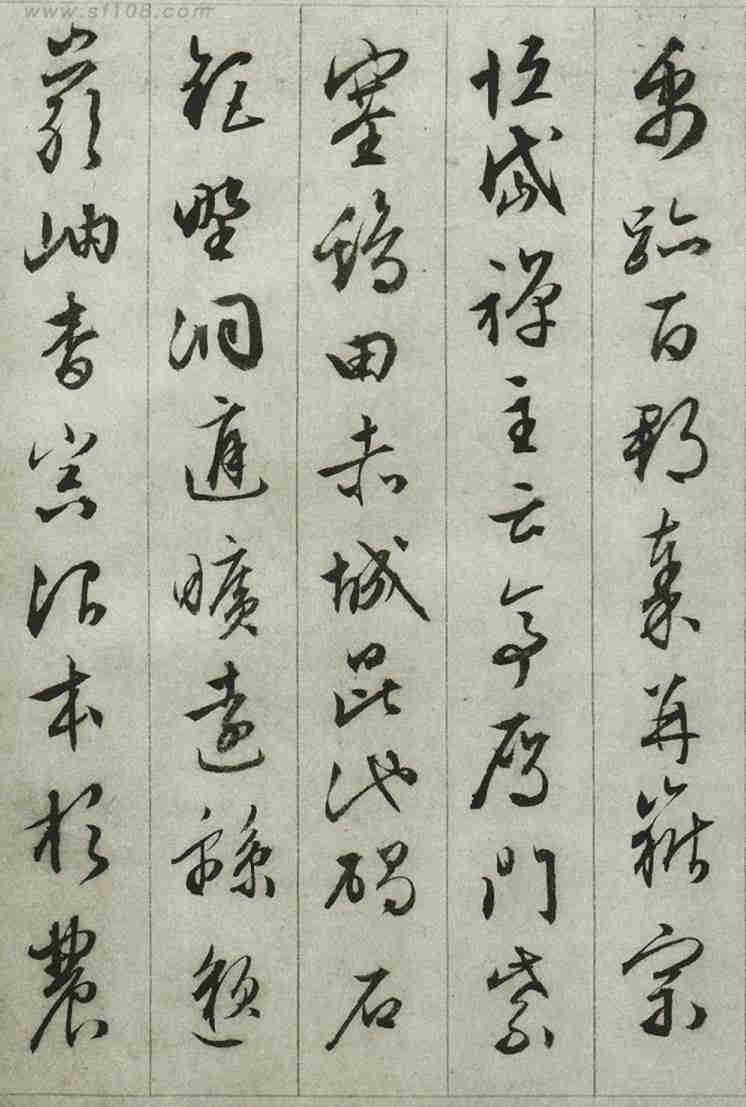 www.sf108.com
禹跡百郡秦并嶽宗
恒岱禪主云亭鴈門紫
塞鷄田赤城昆池碣石
鉅野洞庭曠遠緜邈
巖岫杳冥治本於農